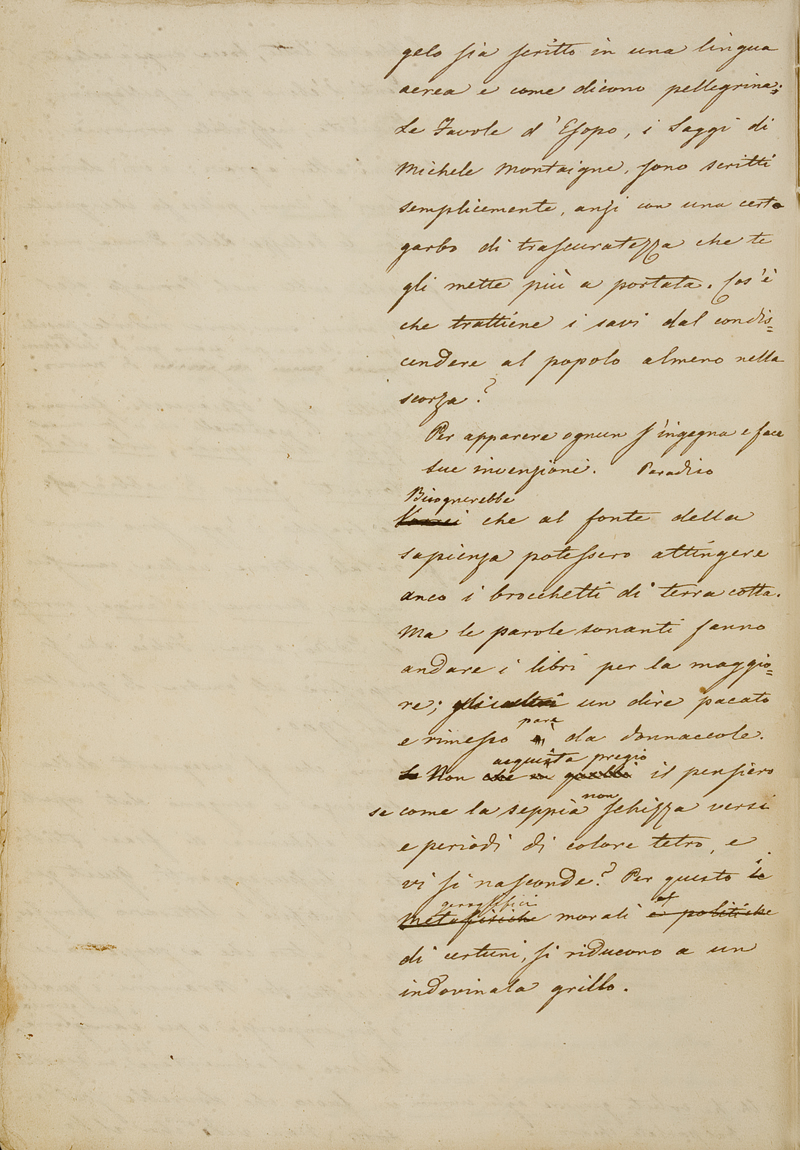 gelo sia scritto in una lingua
aerea e come dicono pellegrina;
Le Favole d'Esopo, i Saggi di
Michele Montaigne, sono scritti
semplicemente, anzi con una certo
garbo di trascuratezza che te
gli mette più a portata. Cos'è
che trattiene i savi dal condis=
cendere al popolo almeno nella
scorza?
Per apparere ognun s'ingegna e face
sue invenzioni. Paradiso
Bisognerebbe
Vorrei che al fonte della
sapienza potessero attingere
anco i brocchetti di terra cotta.
Ma le parole sonanti fanno
andare i libri per la maggio=
re; gli altri un dire pacato
pare
e rimesso è da donnaccole.
acquista pregio
Non che il pensiero
non
se come la seppia schizza versi
e periodi di colore tetro, e
vi si nasconde? Per questo le
i
geroglifici et
metafisiche morali e politiche
di certuni, si riducono a un
indovinala grillo.